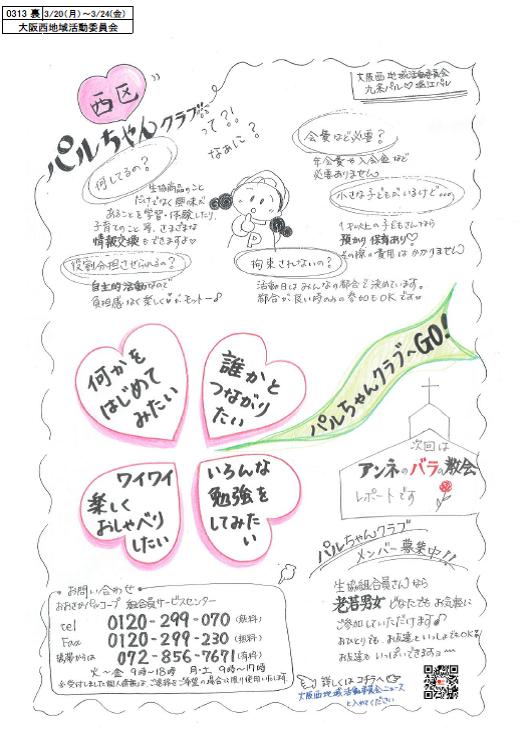 0313 裏 3/20(月)～3/24(金)
大阪西地域活動委員会
大阪西地域活動委員会
九条パル♡堀江パル
西区
パルちゃんクラブ って？！
なぁに？
何してるの？
生協商品のこと
だけでなく興味が
あることを学習・体験したり、
子育てのこと等、さまざまな
情報交換もできますョ♡
役割分担させられるの？
自主的活動なので
負担感なく楽しく♥がモットー♪
会費など必要？
年会費や入会金など
必要ありません
小さな子どもがいるけど…。
1才以上の子どもさんなら
預かり保育あり♡
その際の費用はかかりません
拘束されないの？
活動日はみんなの都合で決めています。
都合が良い時のみの参加もOKです♡
P
何かを
はじめて
みたい
誰かと
つながり
たい
ワイワイ
楽しく
おしゃべり
したい
いろんな
勉強を
してみた
い
パルちゃんクラブへGO!
次回は
アンネのバラの教会
レポートです
パルちゃんクラブ
メンバー募集中!!
生協組合員さんなら
老若男女どなたでもお気軽に
ご参加していただけます♪
おひとりでも、お友達といっしょでもOK♪
お友達もいっぱいできますョ
詳しくはコチラへ
大阪西地域活動委員会ニュース
と入れてください
お問い合わせ
おおさかパルコープ 組合員サービスセンター
tel 0120-299-070(無料)
Fax 0120-299-230(無料)
携帯からは 072-856-7671(有料)
火～金 9時～18時 月・土 9時～17時
※受付しました個人情報は、ご連絡をご希望の場合に限り使用いたします。